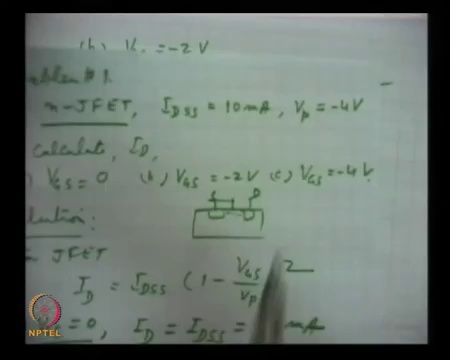 (b) V = -2 V
Problem # 1.
n-JFET, I_DSS = 10 mA, V_p = -4V
calculate, I_D,
) V_GS = 0 (b) V_GS = -2V (c) V_GS = -4V.
lution:
JFET
I_D = I_DSS (1 - V_GS/V_p) 2
= 0, I_D = I_DSS = mA
NPTEL